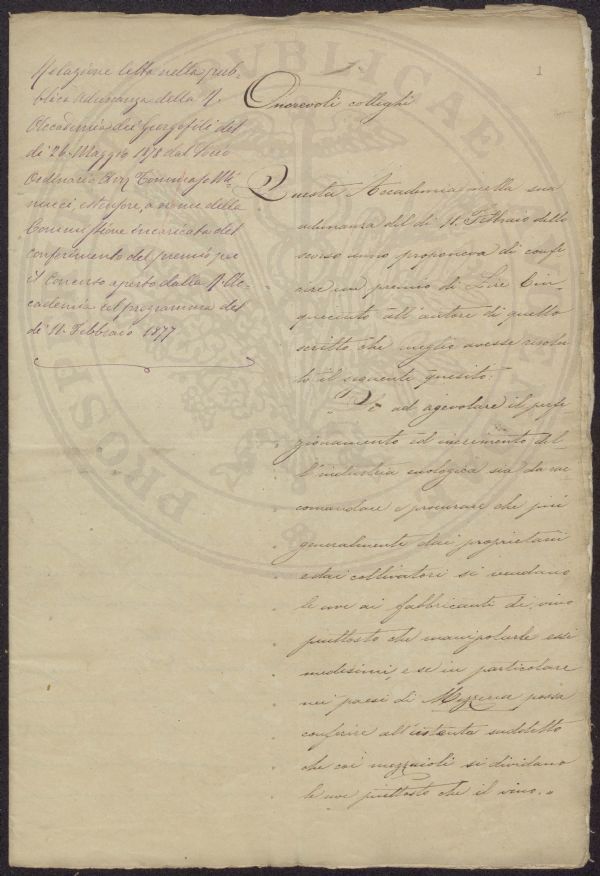 1
Relazione letta nella pub-
blica adunanza della R.
Accademia dei Georgofili del
dì 26 Maggio 1878 dal Socio
Ordinario Avv.
nucci, estensore, a nome della
Commissione incaricata del
conferimento del premio per
il Concorso aperto dalla R. Ac-
cademia col programma del
dì 11. Febbraio 1877
Onorevoli colleghi
Questa Accademia nella sua
adunanza del dì 11. Febbraio dello
scorso anno proponeva di confe-
rire un premio di Lire Cin-
quecento all'autore di quello
scritto che meglio avesse risolu-
to il seguente quesito:
"Se ad agevolare il perfe-
zionamento ed incremento del-
l'industria enologica sia da rac-
comandare e procurare che più
generalmente dai proprietari
e dai coltivatori si vendano
le uve ai fabbricanti di vino
piuttosto che manipolarle essi
medesimi, e se in particolare
nei paesi di Mezzeria possa
conferire all'intento suddetto
che coi mezzaioli si dividano
le uve piuttosto che il vino."
PUBLICAE
PROSPE